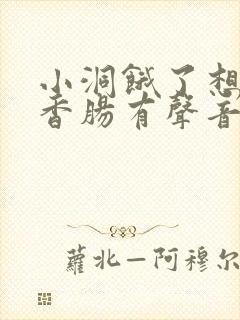 小洞餓了想
香腸有聲音
蘿北—阿穆尔